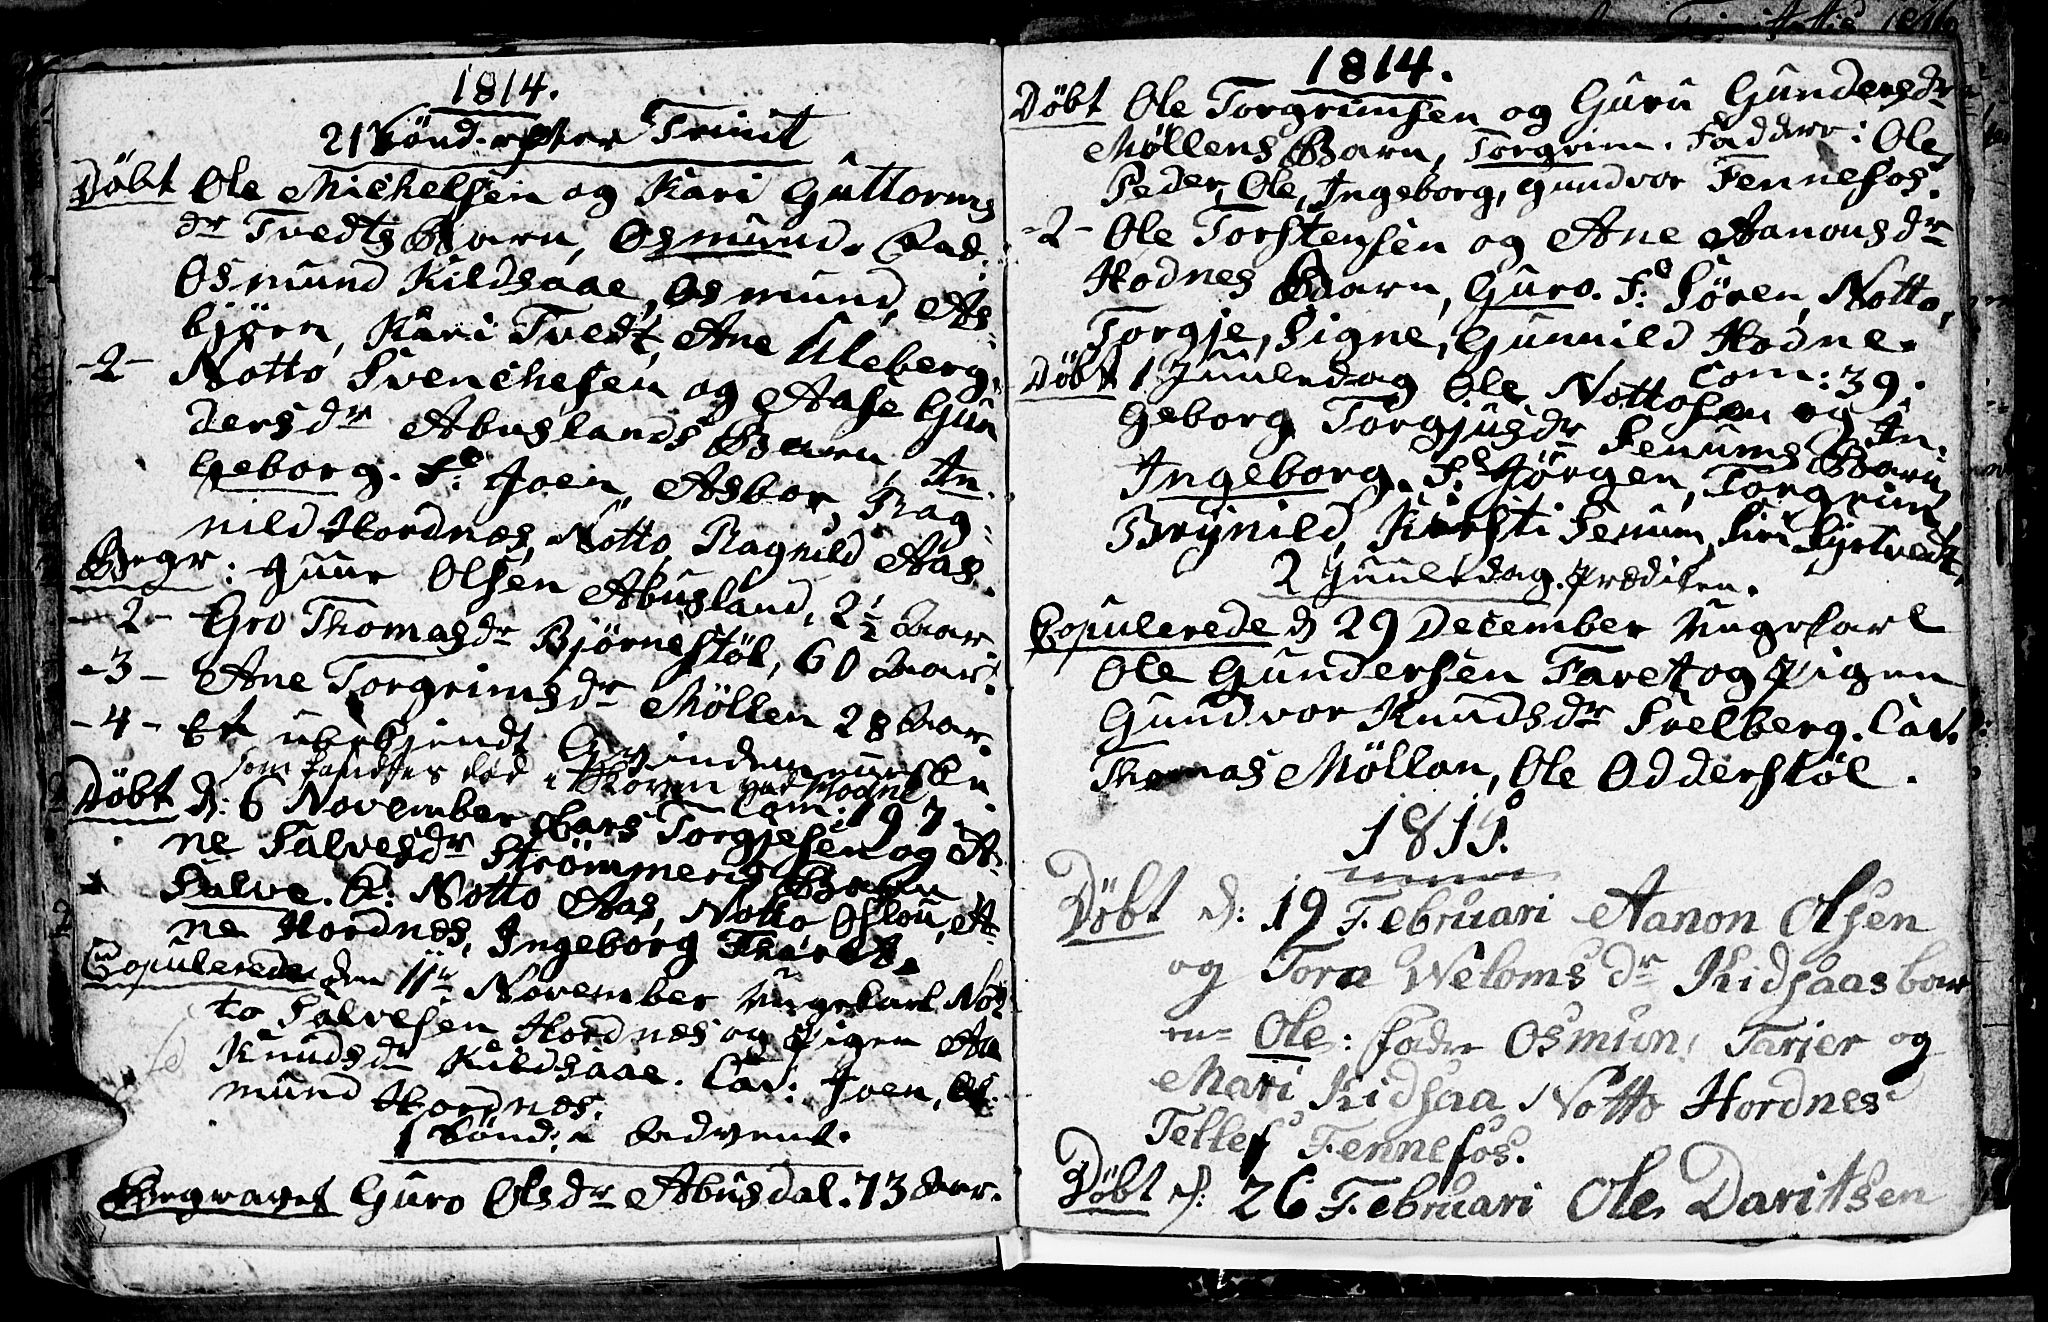 1814.
21 Sönd. efter Trinit
Döbt Ole Michelsen og Kari Guttorms
dr Tvedts Barn, Osmund. Fad:
Osmund Kildsaae, Osmund, As-
bjørn, Kari Tvedt, Ane Uleberg.
-2- Notto Svenchesen og Aase Gun
dersdr Abuslands Barn, In-
geborg. F: Joen, Asbor, Rag-
nild Hordnes, Notto, Ragnild Aas.
Begr: Guur Olsen Abusland, 2½ Aar.
-2- Gro Thomasdr Bjørnestöl, 60 Aar.
-3- Ane Torgrimsdr Möllen 28 Aar.
-4- Et ubekjendt Qvindemenneske.
som fandtes död i Skoven ved Hodne
Com: 197.
Döbt d: 6 November Lars Torgjesen og A-
ne Salvesdr Strömmens Barn
Salve. F: Notto Aas, Notto Oslou, A-
ne Hordnes, Ingeborg Tharet.
Copulerede den 11te November Ungekarl Not
to Salvesen Hordnes og Pigen Aa
Knudsdr Kildsaae. Cav: Joen, Os-
mund Hordnes.
1 Sönd: i Advent.
Begravet Guro Olsdr Abusdal. 73 Aar.
1814.
Döbt Ole Torgrimsen og Guru Gundersdr
Möllens Barn, Torgrim. Faddere: Ole
Peder, Ole, Ingeborg, Gundvor Fennefos.
-2- Ole Torstensen og Ane Aanonsdr
Hodnes Barn, Guro. F: Sören, Notto,
Torgje, Signe, Gunnild Hodne.
Com: 39.
Döbt 1 Juuledag Ole Nottosen og In-
geborg Torgjusdr Senums Barn
Ingeborg. F: Jörgen, Torgrim
Brynild, Kirsti Senum, Siri Syrtvedt.
2 Juuledag. Prædiken.
Copulerede d 29 December Ungekarl
Ole Gundersen Faret og Pigen
Gundvor Knudsdr Svelberg. Cav:
Thomas Möllan, Ole Odderstöl.
1815.
Döbt d: 19 Februari Aanon Olsen
og Torn Weloms dr Kidsaas bar
en= Ole: fadr Osmun, Tarjer og
Mari Kidsaa Notto Hordnes
Tellef Fennefos.
Döbt d: 26 Februari Ole Daritsen